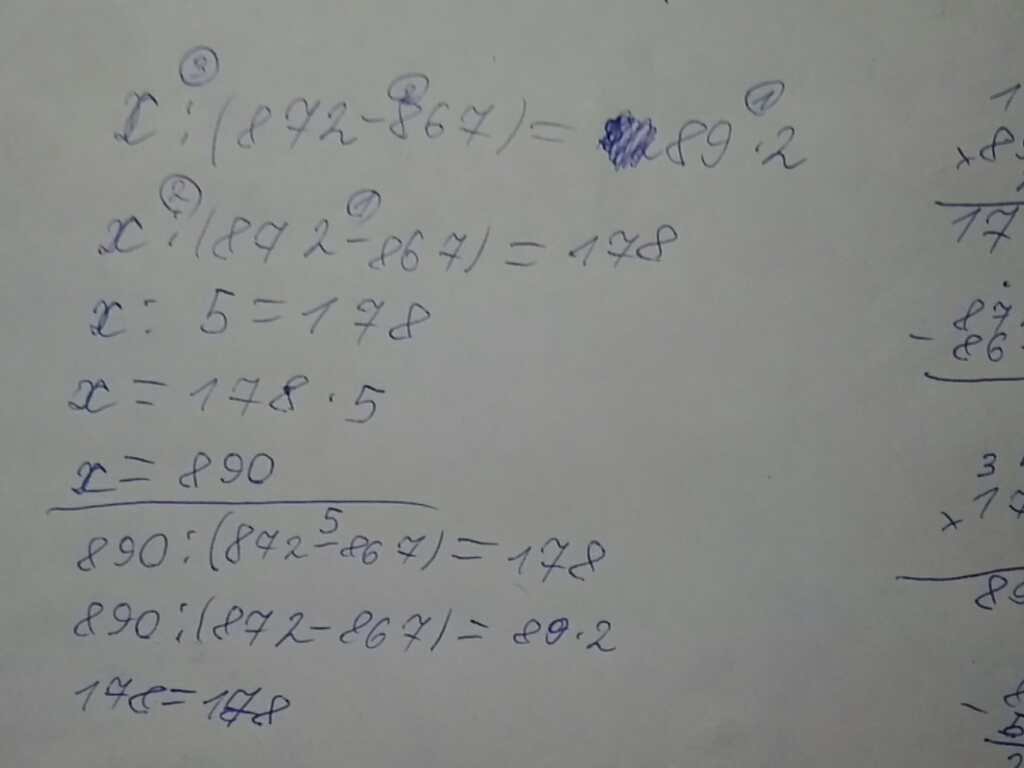 ③ ② ①
x : (872-867) = 89·2
② ①
x : (872-867) = 178
x : 5 = 178
x = 178·5
x = 890
5
890 : (872-867) = 178
890 : (872-867) = 89·2
178 = 178
1
×8
17
87
- 86
3
×17
89
- 8